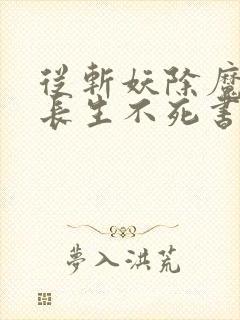 從斬妖除魔
長生不死書
夢入洪荒